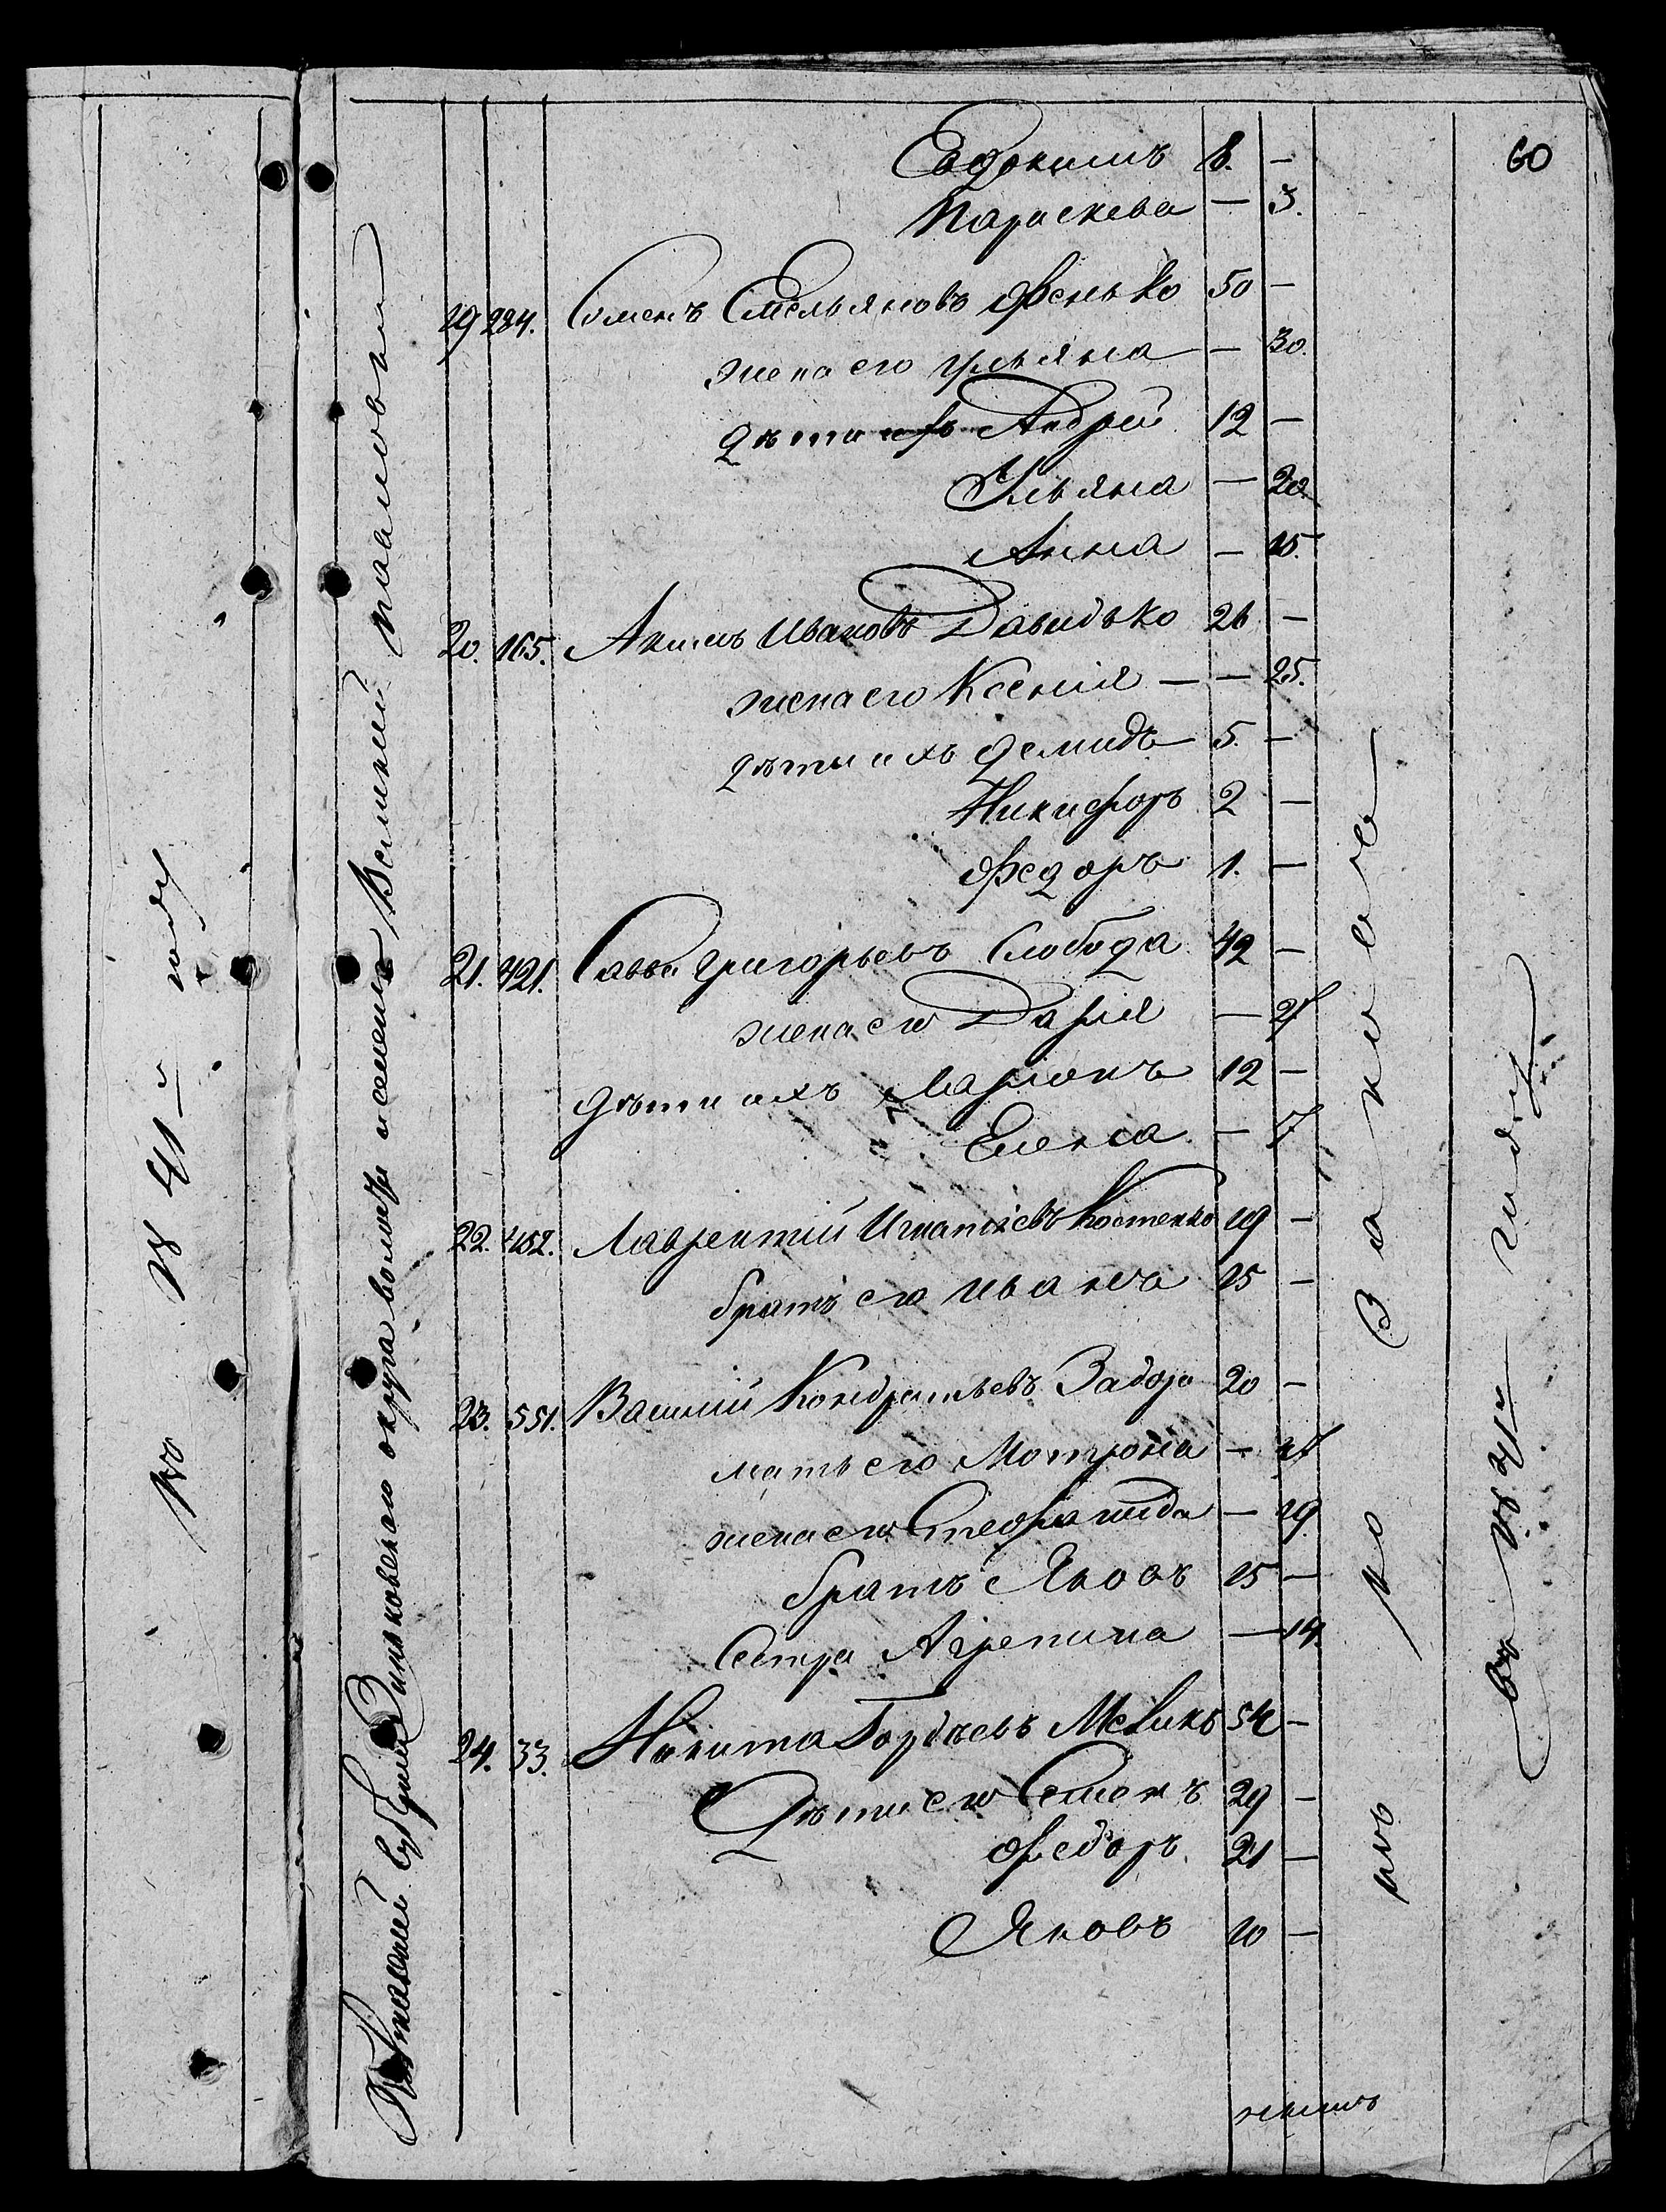 60
Евдокимъ 8. —
Параскева — 3.
19 284. Семенъ Емельяновъ Фенько 50 —
жена его Ульяна — 30.
дѣти ихъ Андрей 12 —
Ульяна — 20.
Анна — 15.
20. 165. Акимъ Ивановъ Давидько 26 —
жена его Ксенія — — 25.
дѣти ихъ Демидъ 5. —
Никифоръ 2 —
Федоръ 1. —
21. 421. Савва Григорьевъ Слобода 42 —
жена его Дарія —
дѣти ихъ Ларіонъ 12 —
Елена — 7
22. 452. Лаврентій Игнатіевъ Костенко 19 —
братъ его Иванъ 15 —
23. 551. Василій Кондратьевъ Задоро 20 —
мать его Мотрона —
жена его Стефанида — 19
братъ Яковъ 15 —
Сестра Агрепина — 14.
24. 33. Никита Гордѣевъ 54 —
Дѣти его Семенъ 29 —
Федоръ. 21 —
Яковъ 10 —
Полтавской Губерніи Зиньковского округа волости и селенія Великой Павловки
въ 1841 году